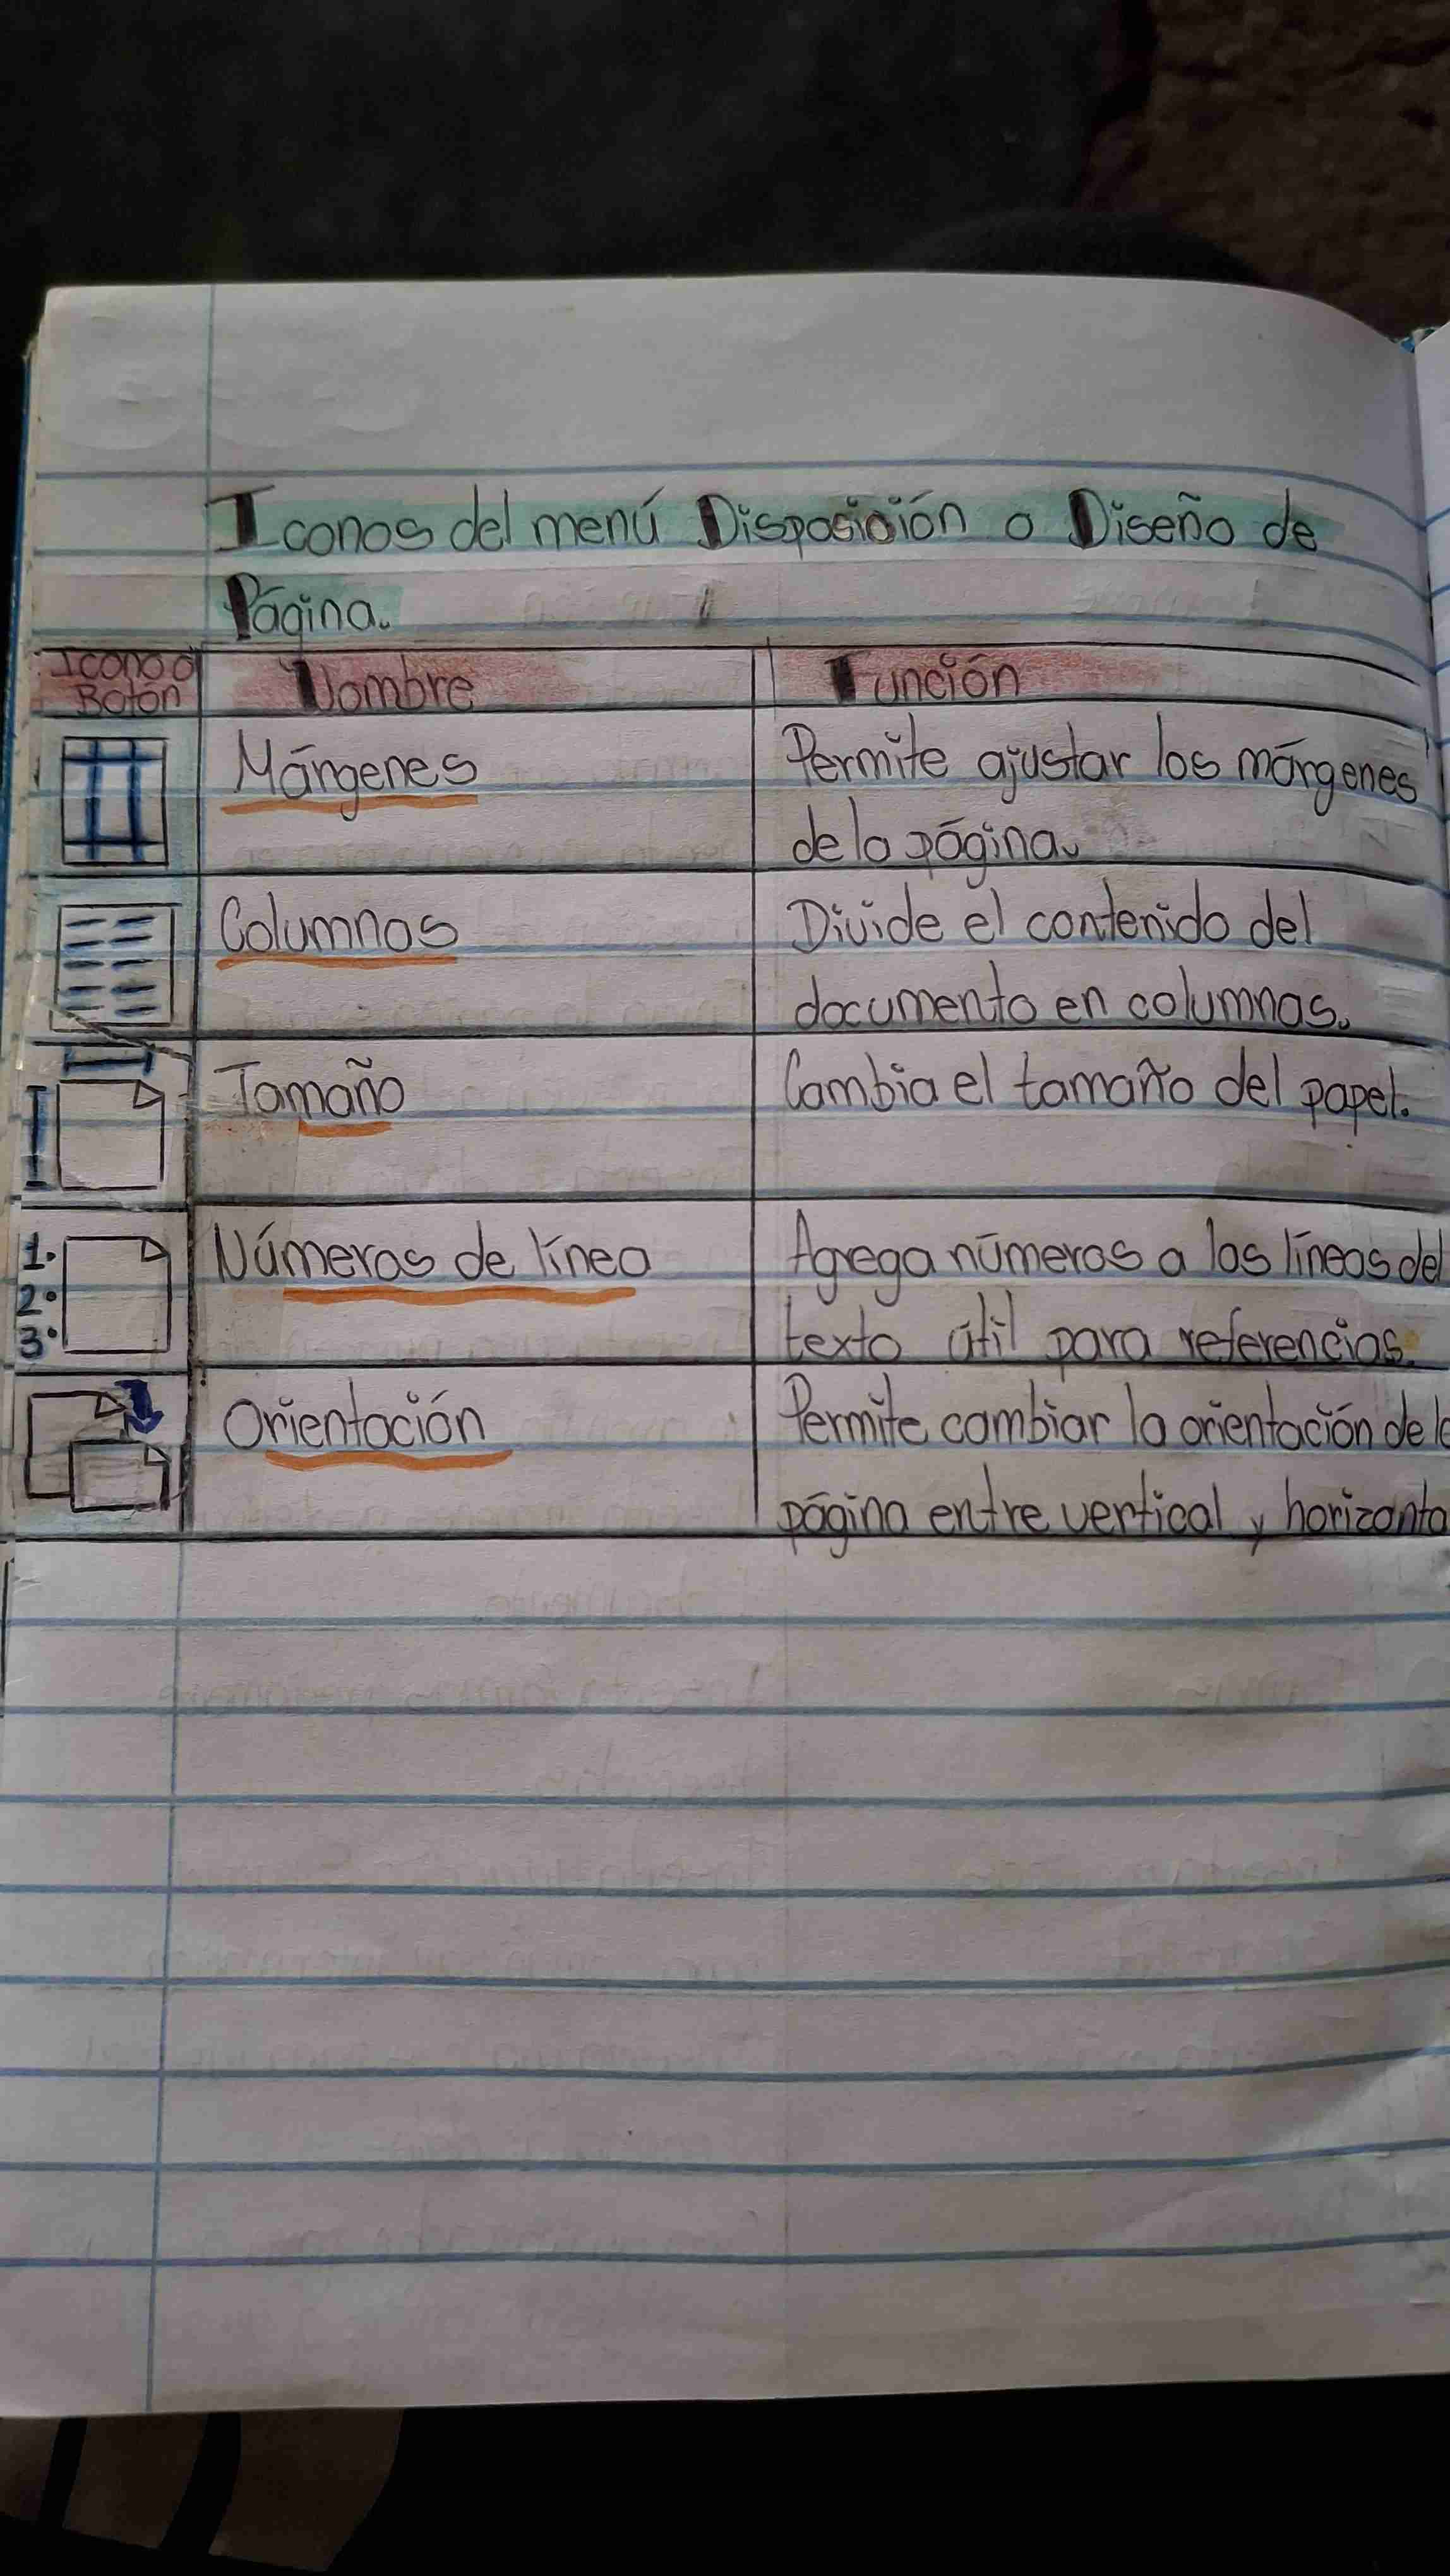 Iconos del menú Disposición o Diseño de
Página.
Icono o
Botón
Nombre
Función
Márgenes
Permite ajustar los márgenes
de la página.
Columnas
Divide el contenido del
documento en columnas.
Tamaño
Cambia el tamaño del papel.
1.
2.
3.
Números de línea
Agrega números a las líneas del
texto útil para referencias.
Orientación
Permite cambiar la orientación de la
página entre vertical y horizonta